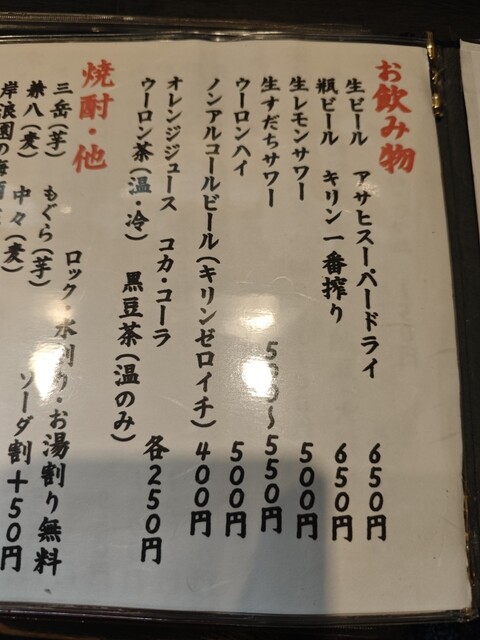 お飲み物
生ビール アサヒスーパードライ 650円
瓶ビール キリン一番搾り 650円
生レモンサワー 500円
生すだちサワー 500〜550円
ウーロンハイ 500円
ノンアルコールビール(キリンゼロイチ) 400円
オレンジジュース コカ・コーラ
ウーロン茶(温・冷) 黒豆茶(温のみ) 各250円
焼酎・他
ロック・水割り・お湯割り無料
三岳(芋) もぐら(芋) ソーダ割+50円
兼八(麦) 中々(麦)
岸浪園の梅酒